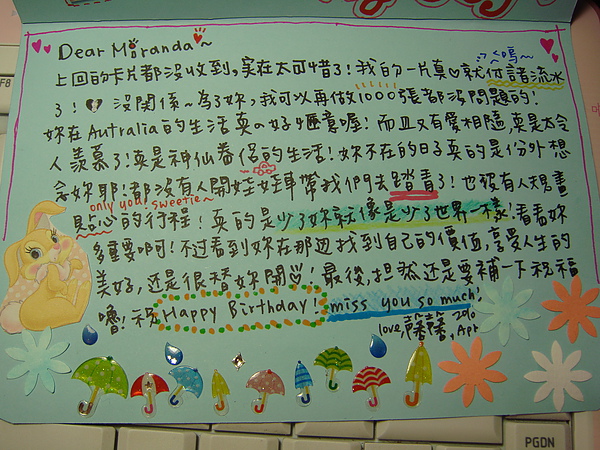 Dear Miranda~
上回的卡片都沒收到,實在太可惜了!我的一片真♡就付諸流水
<嗚~
了! 沒關係~為了妳,我可以再做1000張都沒問題的!
妳在Autralia的生活真的好愜意喔!而且又有愛相隨,真是太令
人羨慕了!真是神仙眷侶的生活!妳不在的日子真的是份外想
念妳耶!都沒有人開娃娃車帶我們去踏青了!也沒有人規畫
only you! sweetie~
貼心的行程!真的是少了妳就像是少了世界一樣!看看妳
多重要啊!不過看到妳在那邊找到自己的價值,享受人生的
美好,還是很替妳開心!最後,當然還是要補一下祝福
嚕!祝Happy Birthday! miss you so much!
love, 2010
Apr
F8
PGDN